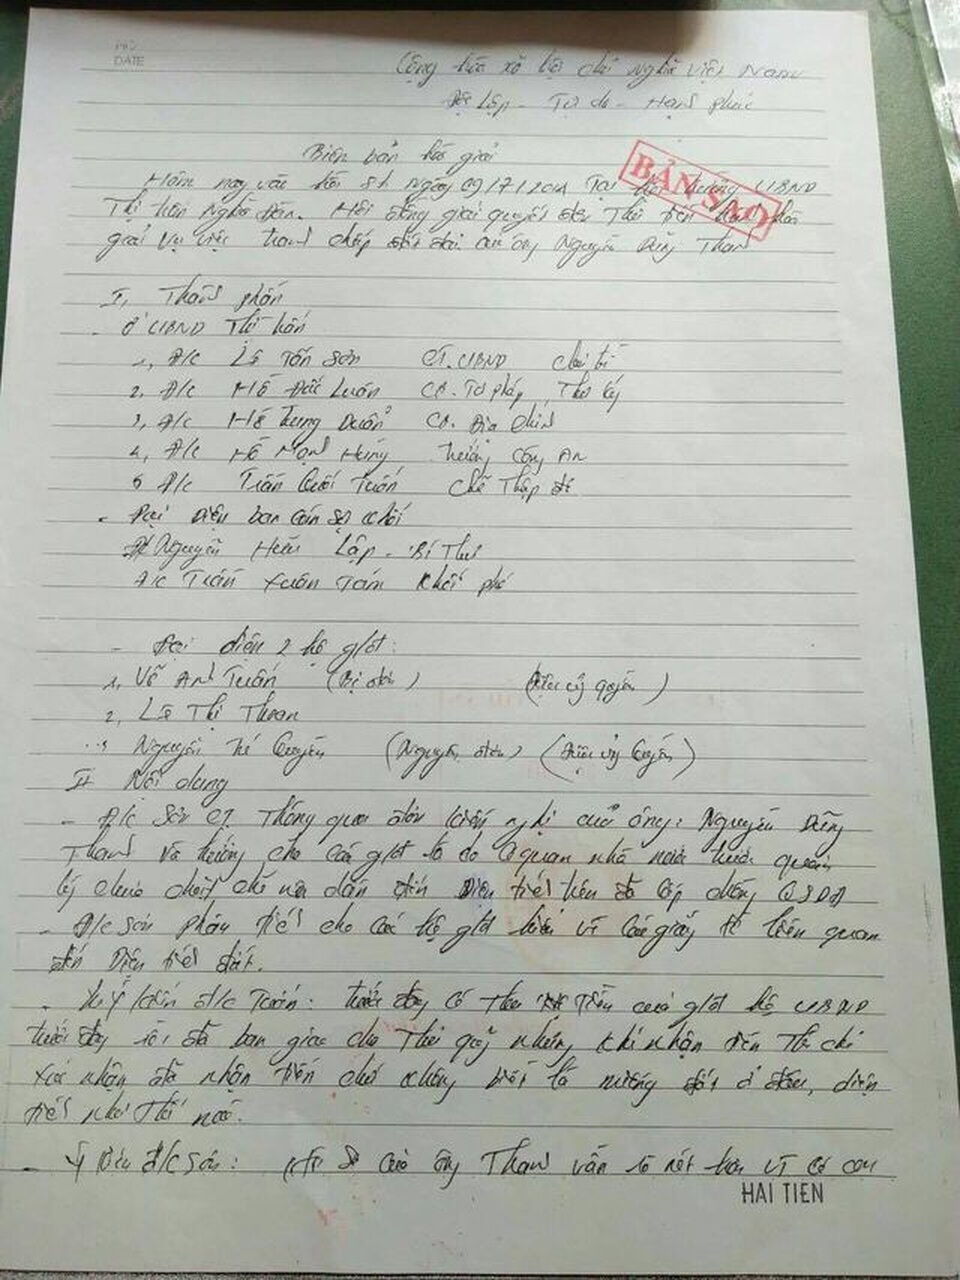 NO
DATE
Cộng hòa xã hội chủ nghĩa Việt Nam
Độc lập - Tự do - Hạnh phúc
BẢN SAO
Biên bản hòa giải
Hôm nay vào hồi 8h ngày 09/7/2014 Tại hội trường UBND
Thị trấn Nghĩa Đàn. Hội đồng giải quyết đơn Thư tiến hành hòa
giải vụ việc tranh chấp đất đai của ông Nguyễn Dũng Thanh
I, Thành phần
- ở UBND Thị trấn
1, Đ/c Lê Tấn Sơn CT.UBND chủ trì
2, Đ/c Hồ Đức Luân CB. Tư pháp, Thư ký
3, Đ/c Hồ Trung Duẩn CB. Địa chính
4, Đ/c Hồ Mạnh Hùng trưởng Công An
5 Đ/c Trần Quốc Tuấn chữ Thập đỏ
- Đại diện ban cán sự khối
Đ/c Nguyễn Hữu Lập - Bí Thư
Đ/c Trần Xuân Tám khối phó
- Đại diện 2 hộ g/đ:
1, Võ Anh Tuấn (Bị đơn) ( ủy quyền)
2, Lê Thị Thoan
3 Nguyễn Thế Quyền (Nguyên đơn) ( ủy Quyền)
II Nội dung
- Đ/c Sơn CT Thông qua đơn kiến nghị của ông: Nguyễn Dũng
Thanh và hướng cho các g/đ là do cơ quan nhà nước trước quản
lý chưa chặt chẽ nên dẫn đến diện tích trên đã cấp chồng QSDĐ
- Đ/c Sơn phân tích cho các hộ g/đ hiểu về các giấy tờ liên quan
đến Diện tích đất.
- Ý kiến đ/c Tuấn: trước đây có thu Tiền của g/đ hộ UBND
trước đây rồi đã bàn giao cho Thủ quỹ nhưng khi nhận tiền Thì chỉ
xác nhận đã nhận tiền chứ không biết là vướng đất ở đâu, diện
tích như Thế nào.
- Ý kiến đ/c Sơn: Hồ sơ của ông Thanh vẫn rõ nét hơn vì có
HAI TIEN